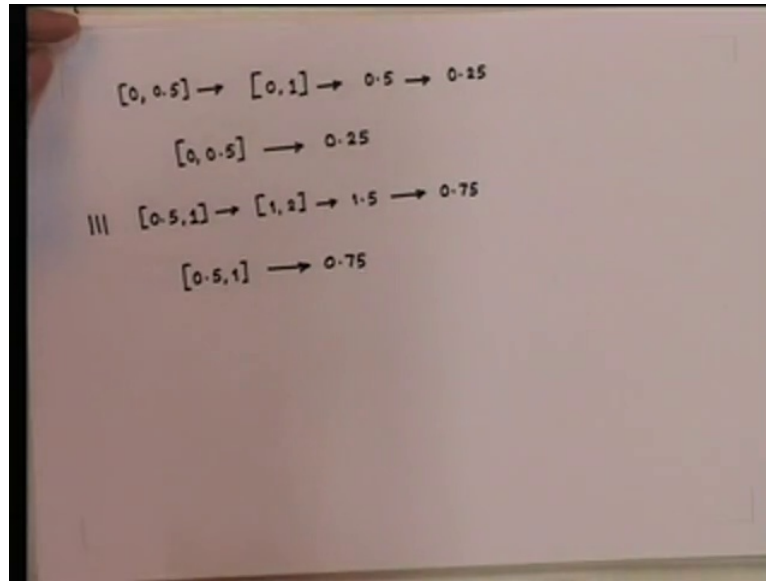 [0, 0.5] → [0, 1] → 0.5 → 0.25
[0, 0.5] → 0.25
||| [0.5, 1] → [1, 2] → 1.5 → 0.75
[0.5, 1] → 0.75